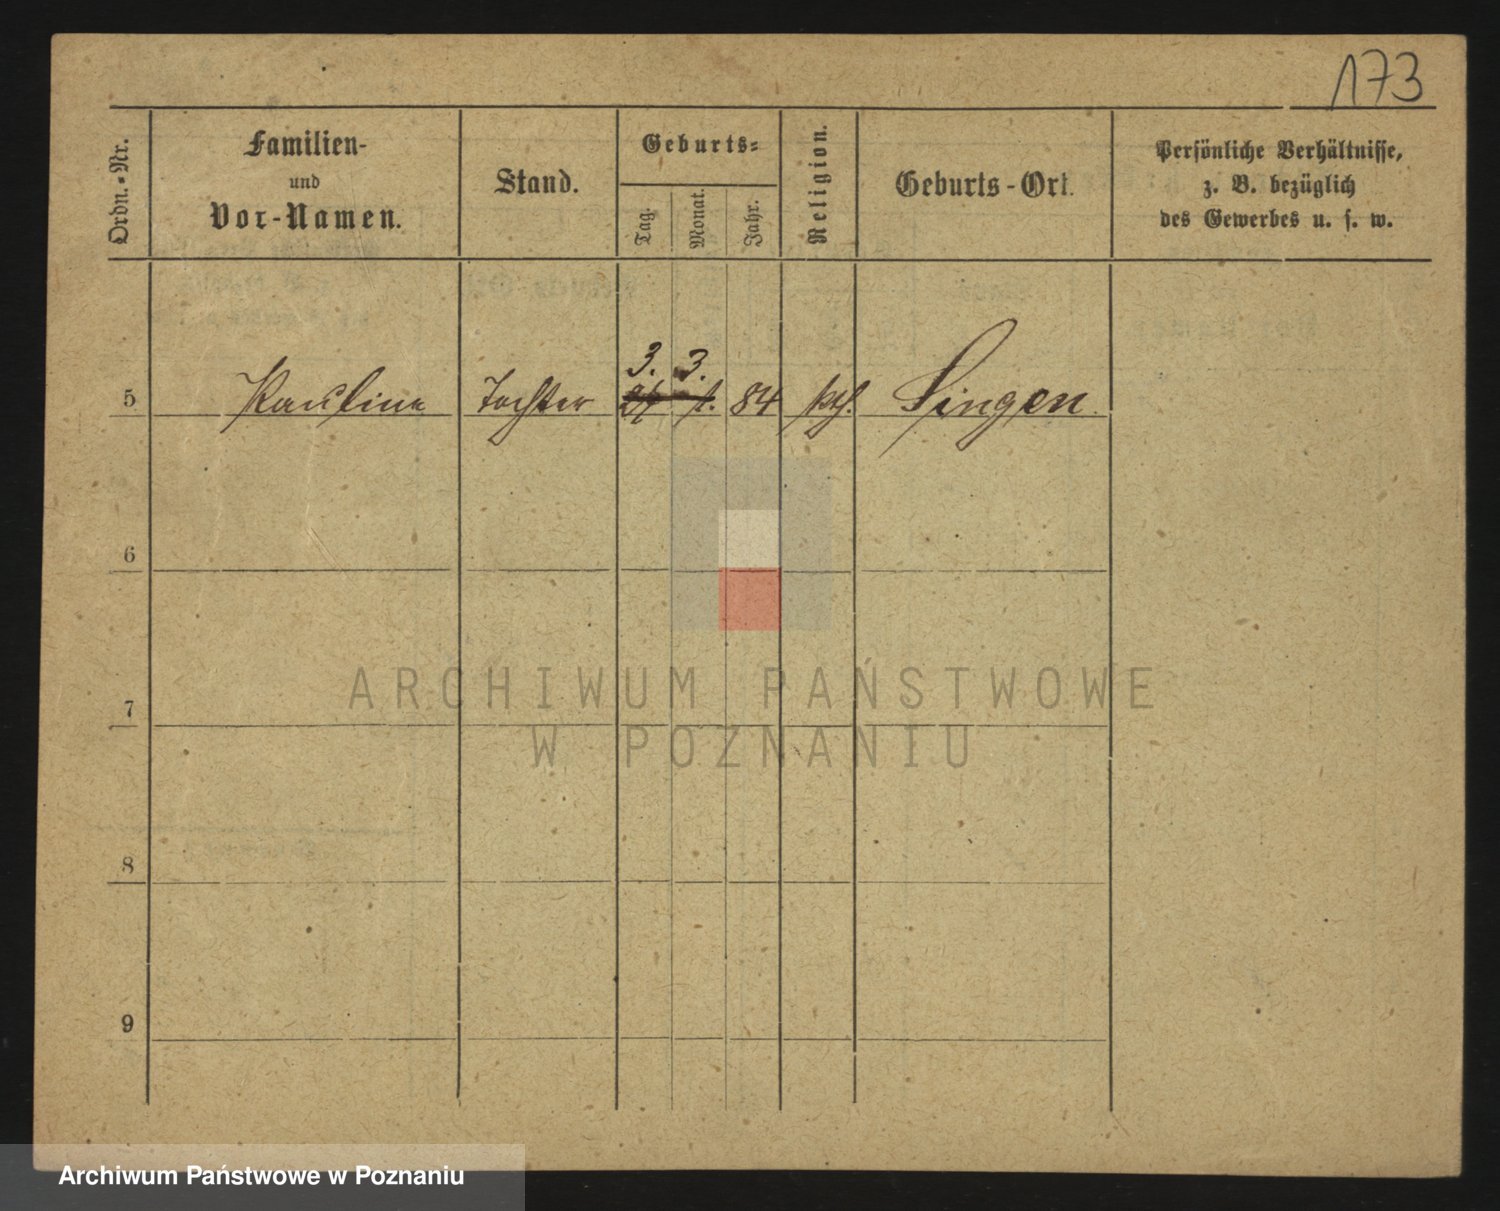 173
Ordn.-Nr.
Familien-
und
Vor-Namen.
Stand.
Geburts-
Tag.
Monat.
Jahr.
Religion.
Geburts-Ort.
Persönliche Verhältnisse,
z. B. bezüglich
des Gewerbes u. s. w.
3. 3.
5 Pauline Tochter 1. 84 kth. Singen
6
7
8
9
ARCHIWUM PAŃSTWOWE
W POZNANIU
Archiwum Państwowe w Poznaniu